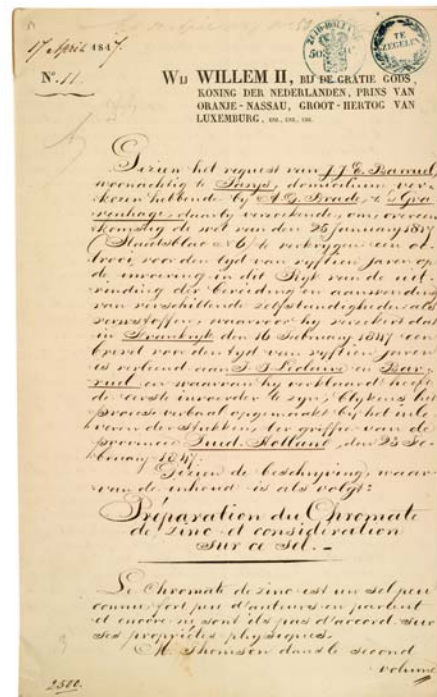 17 April 1847.
No. 11.
ZUID-HOLLAND
50
TE
ZEGELEN
WIJ WILLEM II, BIJ DE GRATIE GODS,
KONING DER NEDERLANDEN, PRINS VAN
ORANJE-NASSAU, GROOT-HERTOG VAN
LUXEMBURG, ENZ., ENZ., ENZ.
Gezien het request van J. J. E.
woonachtig te Parys, domicilium ver-
kozen hebbende by A. G. te 's Gra-
venhage, daarby verzoekende, om, overeen
komstig de wet van den 25 January 1817
(Staatsblad No 6) te verkrygen een oc-
trooi voor den tyd van vyftien jaren op
de invoering in dit Ryk van de uit-
vinding der bereiding en aanwending
van verschillende zelfstandigheden als
verwstoffen, waarvoor hy verzekert dat
in Frankryk den 16 February 1847 een
brevet voor den tyd van vyftien jaren
is verleend aan en Bar-
ruel en waarvan hy verklaard heeft
de eerste invoerder te zyn, blykens het
proces verbaal opgemaakt bij het inle
veren der stukken, ter griffie van de
provincie Zuid-Holland, den 23 Fe-
bruary 1847.
Gezien de beschryving, waar-
van de inhoud is als volgt:
Préparation du Chromate
de zinc et considération
sur ce sel. —
Le Chromate de zinc est un sel peu
connu, fort peu d'auteurs en parlent
et encore ne sont ils pas d'accord sur
ses propriétés physiques.
M. Thomson dans le second
volume
2500.